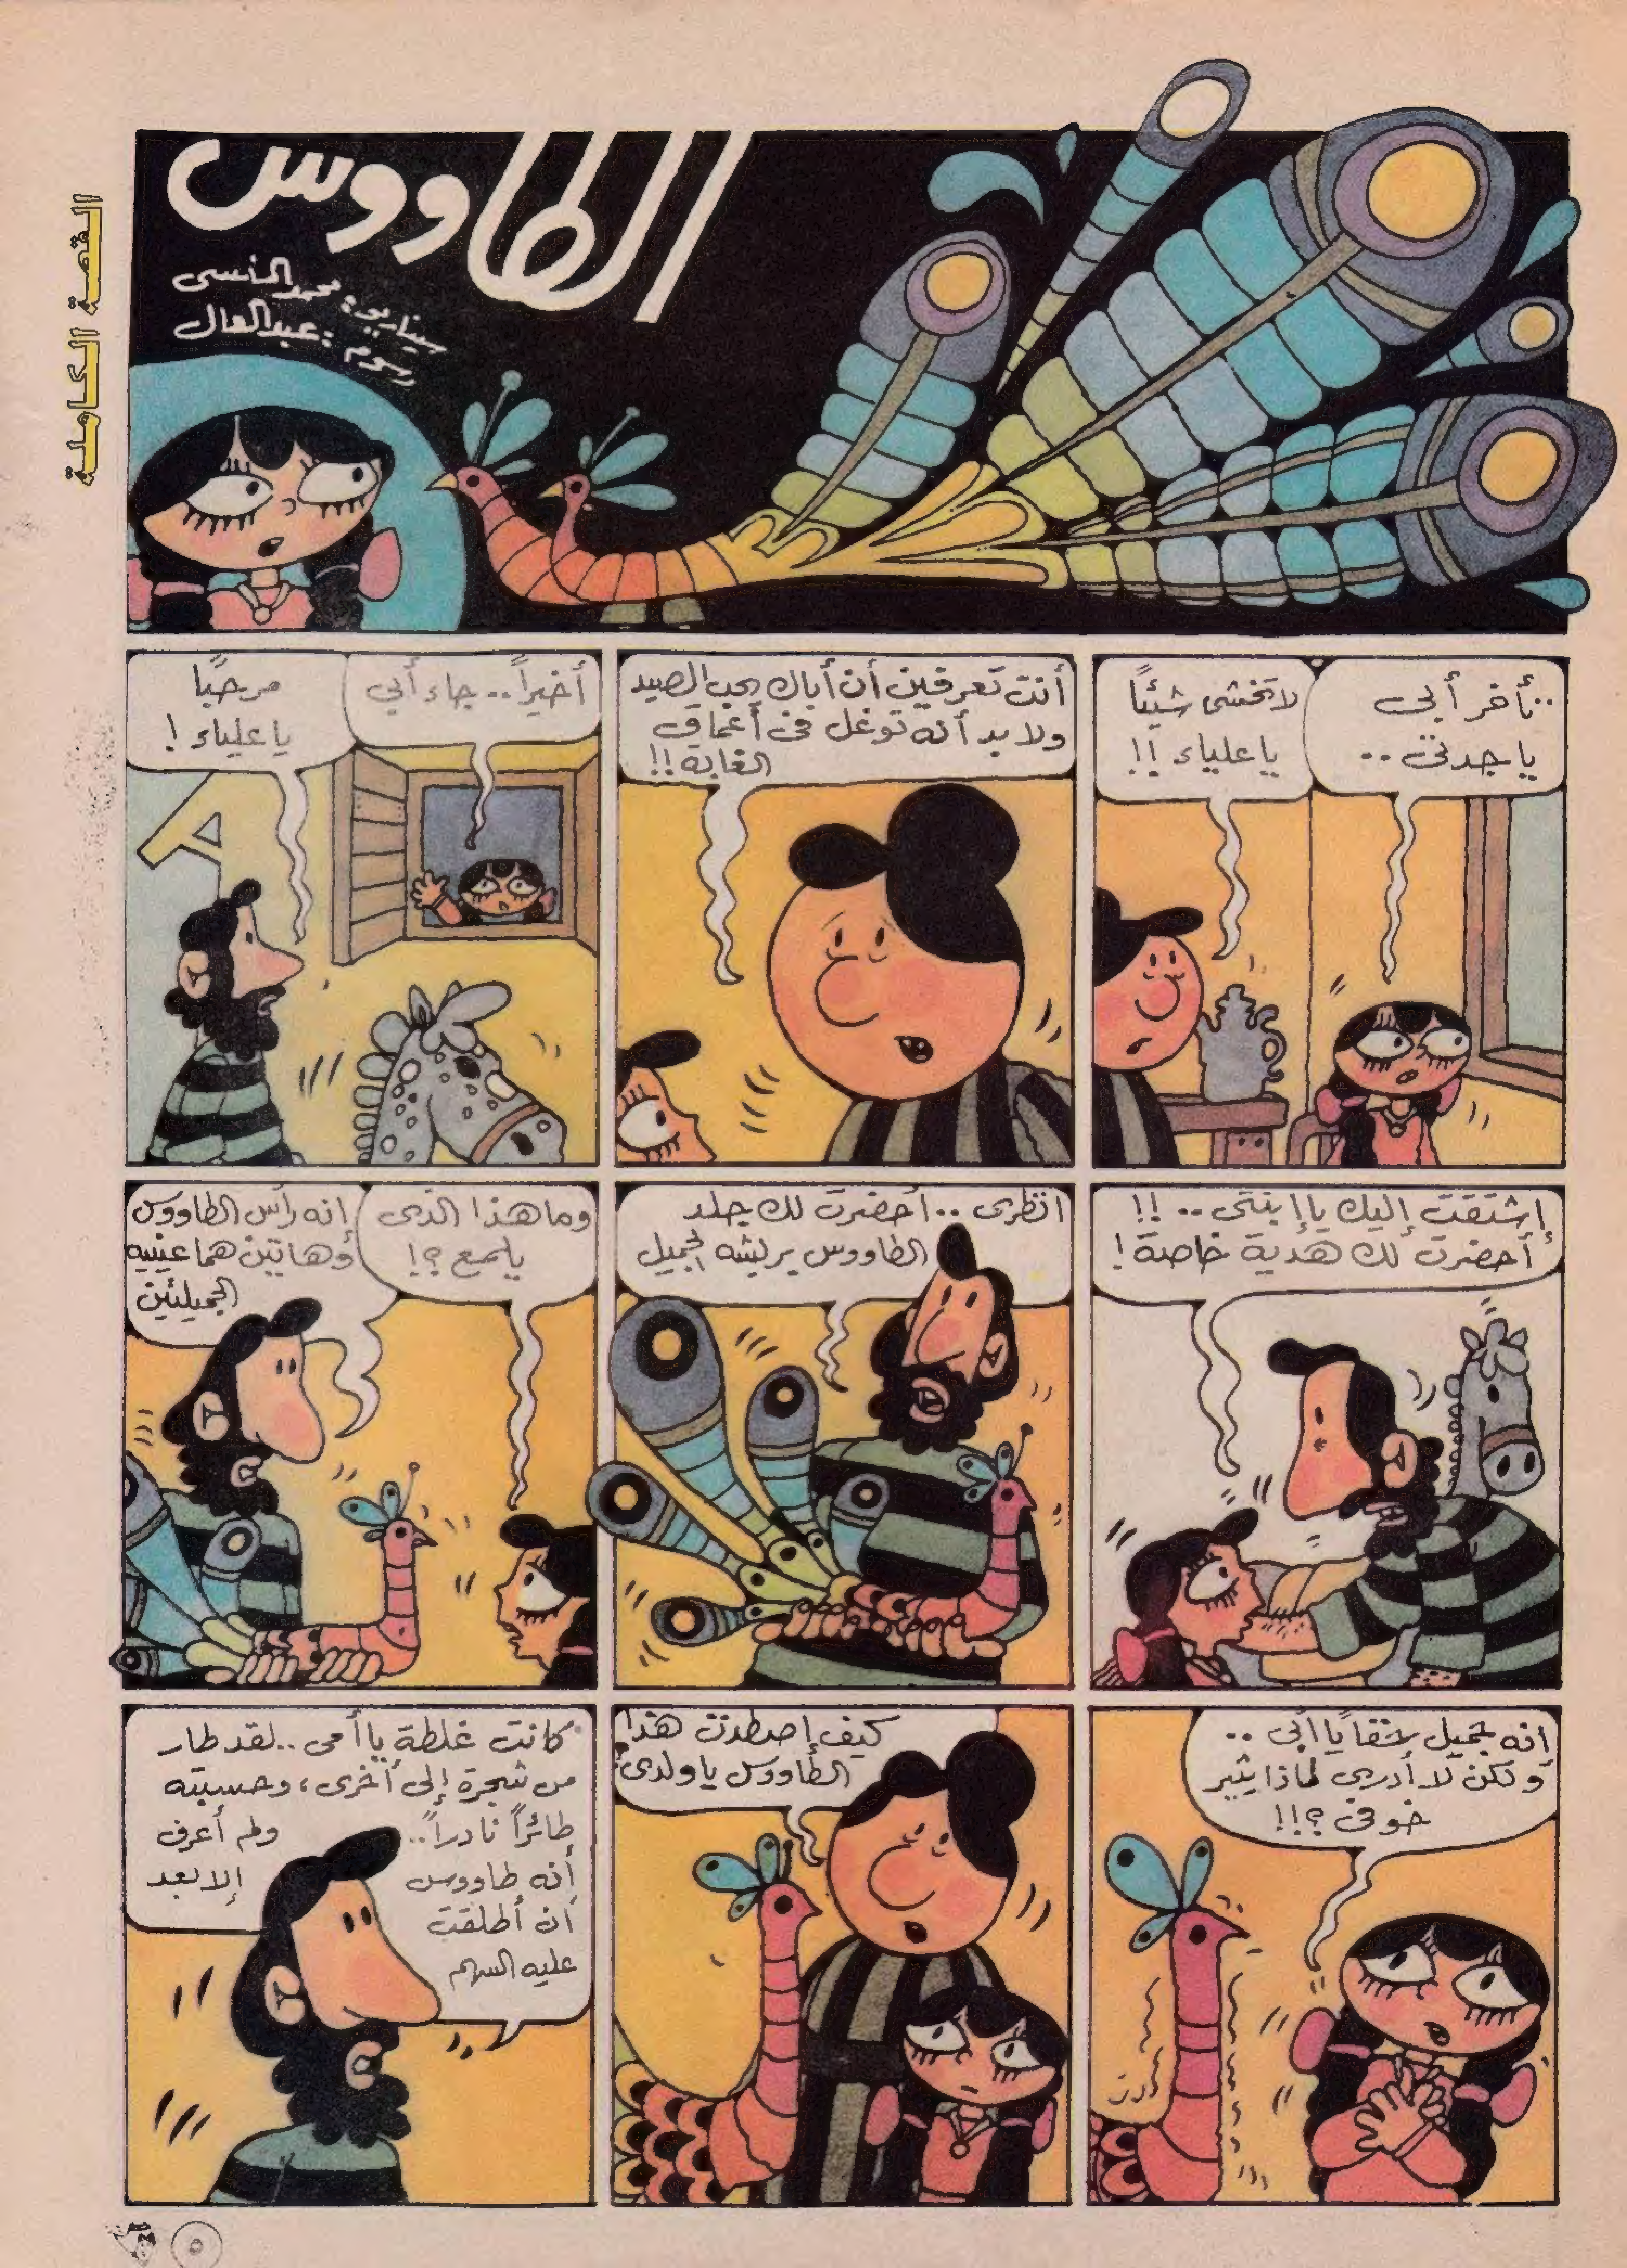 القصة الكاملة
الطاووس
سيناريو: محمد المنسى
رسوم: عبد العال
تأخر أبى..
يا جدتى..
لا تخشى شيئاً
يا علياء !!
أنت تعرفين أن أباك يحب الصيد
ولا بد أنه توغل فى أعماق
الغابة !!
أخيراً.. جاء أبي
مرحبًا
يا علياء !
إشتقت إليك يا إبنتى.. !!
أحضرت لك هدية خاصة !
انظرى.. أحضرت لك جلد
الطاووس بريشه الجميل
وما هذا الذى
يلمع ؟!
انه رأس الطاووس
وهاتين هما عينيه
الجميلتين
انه جميل حقا يا أبى..
ولكن لا أدرى لماذا يثير
خوفى ؟!!
كيف إصطدت هذا
الطاووس يا ولدى؟
كانت غلطة يا أمى.. لقد طار
من شجرة إلى أخرى، وحسبته
طائراً نادراً..
ولم أعرف
أنه طاووس
إلا بعد
أن أطلقت
عليه السهم
٥